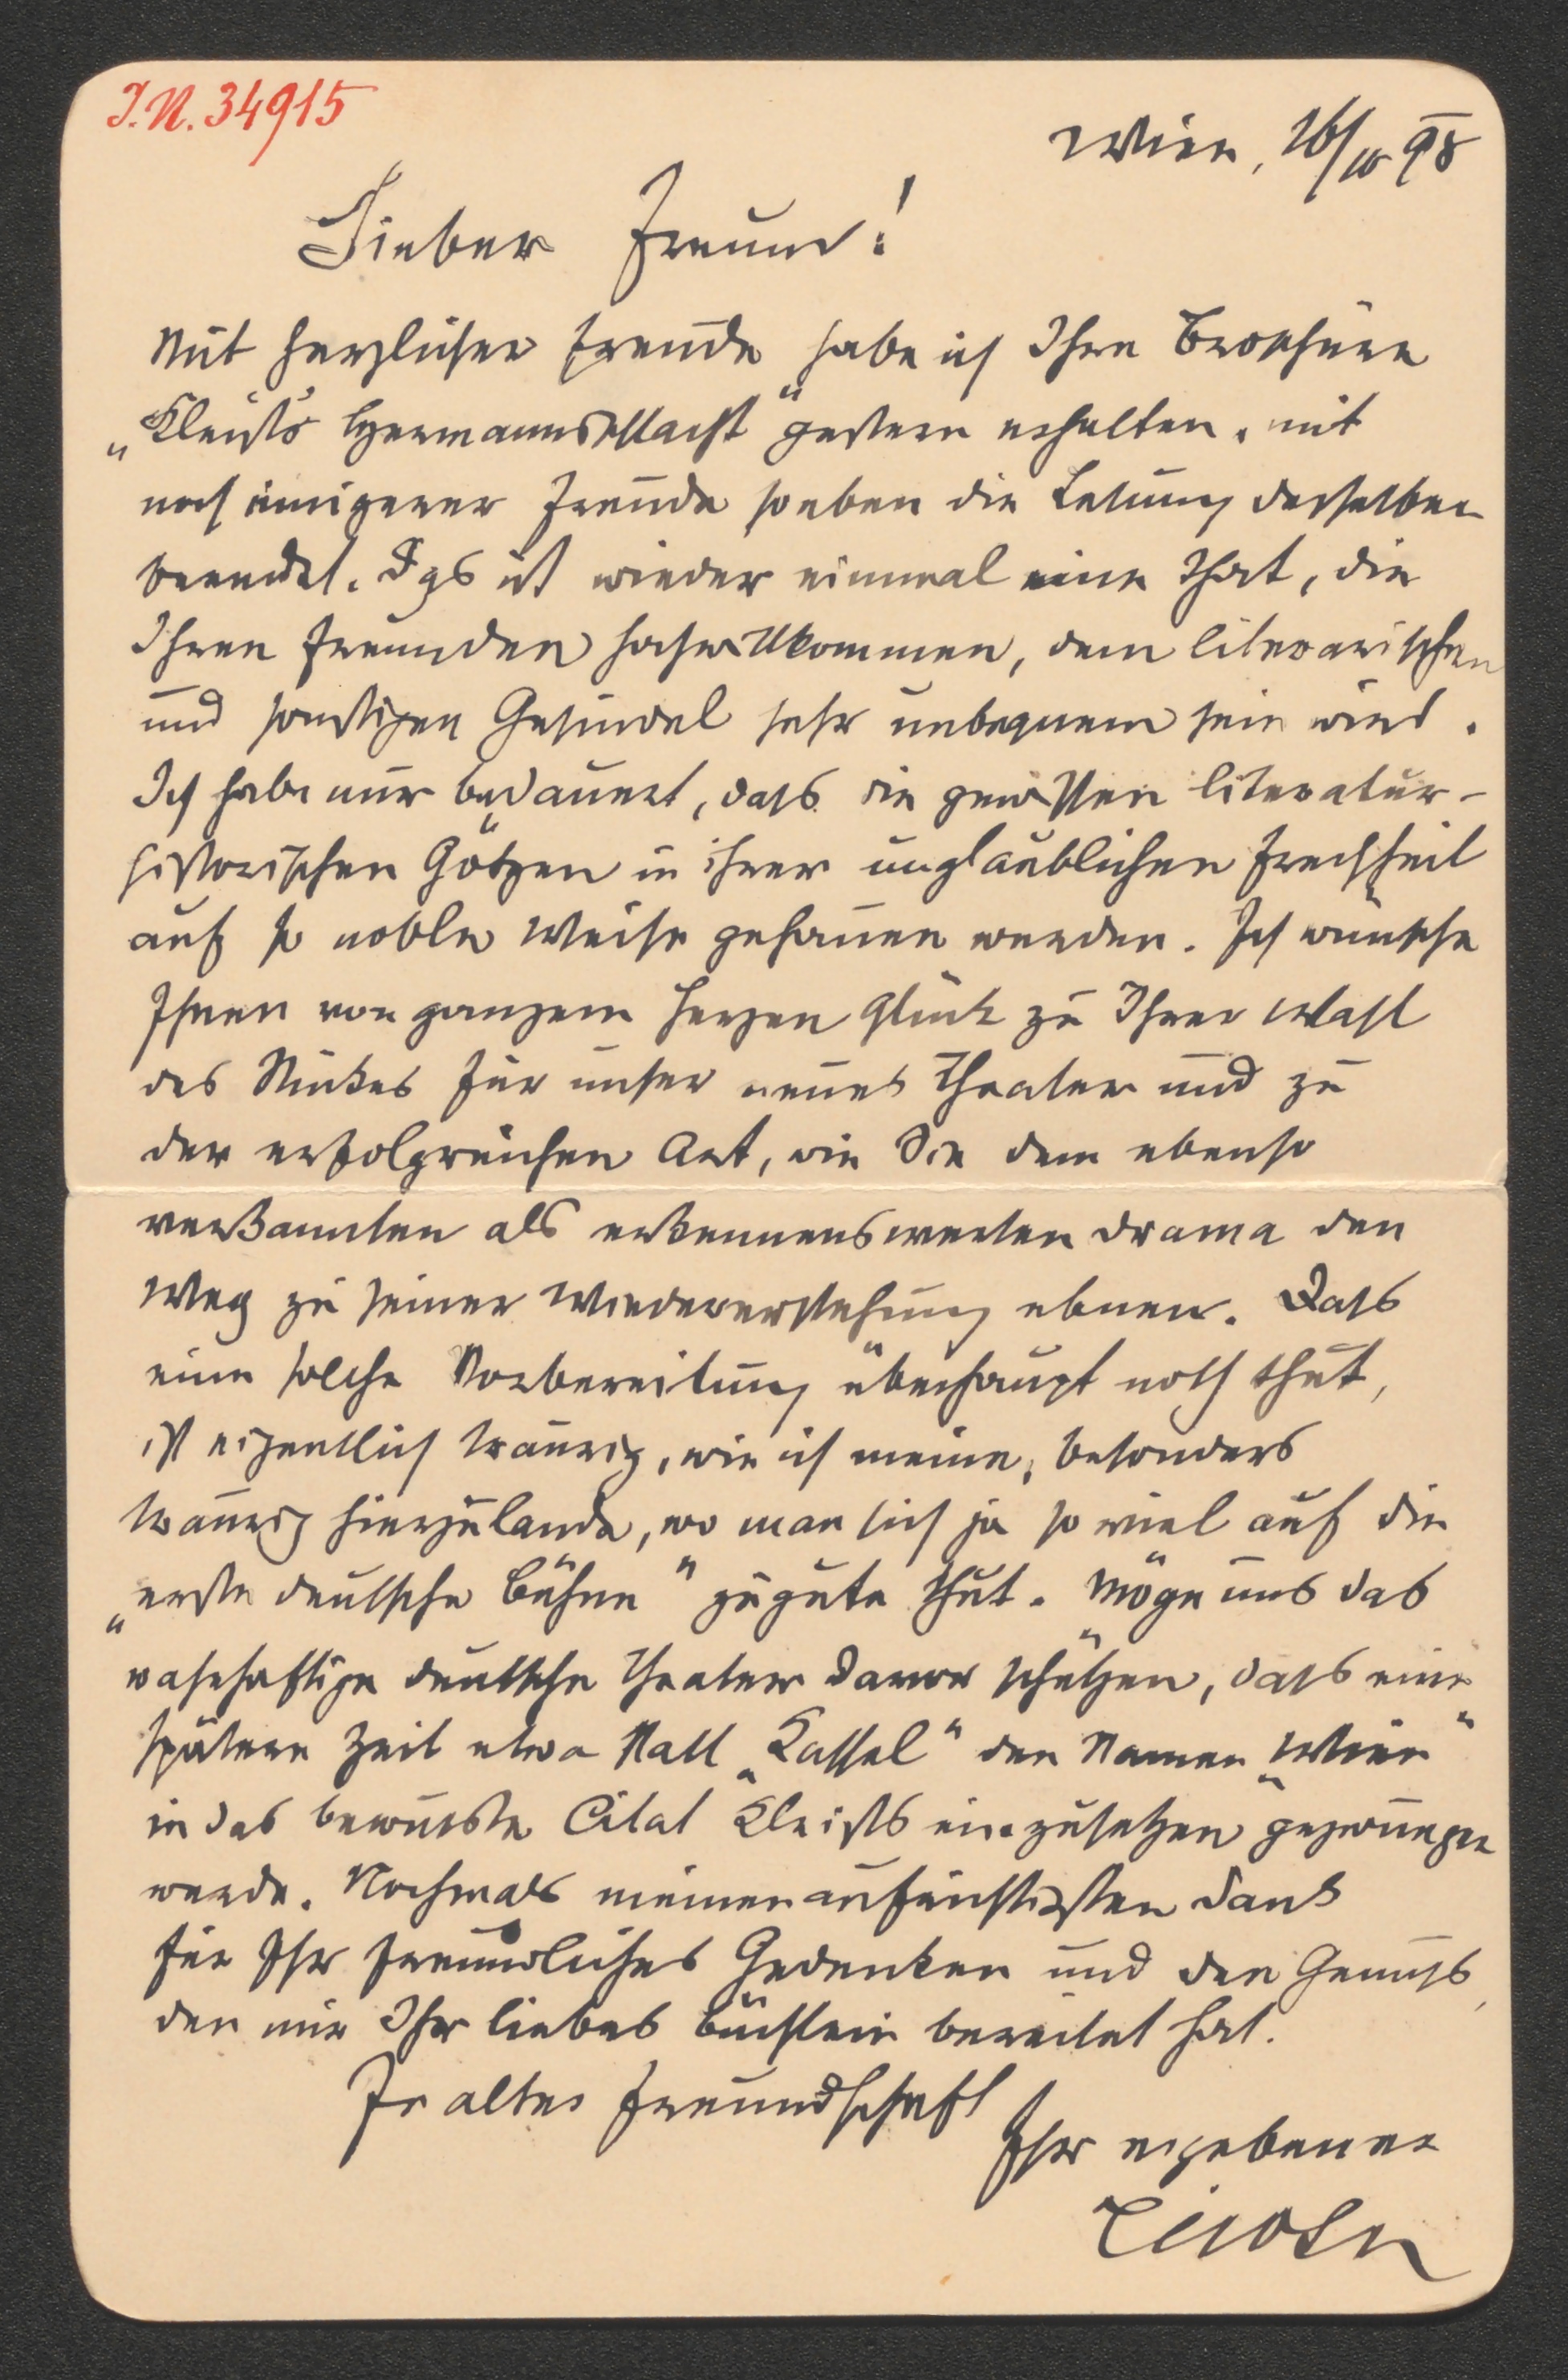 I.N. 34915
Wien, 26/10 98
Lieber Freund!
Mit herzlicher Freude habe ich Ihre Broschüre
„Kleist's Hermannsschlacht“ gestern erhalten, mit
noch innigerer Freude soeben die Lesung derselben
beendet. Das ist wieder einmal eine That, die
Ihren Freunden hochwillkommen, dem literarischen
und sonstigen Gesindel sehr unbequem sein wird.
Ich habe nur bedauert, dass die gewissen literatur-
historischen Götzen in ihrer unglaublichen Frechheit
auf so noble Weise gehauen werden. Ich wünsche
Ihnen von ganzem Herzen Glück zu Ihrer Wahl
des Stückes für unser neues Theater und zu
der erfolgreichen Art, wie Sie dem ebenso
verkannten als erkennenswerten Drama den
Weg zu seiner Wiedererstehung ebnen. Dass
eine solche Vorbereitung überhaupt noth thut,
ist eigentlich traurig, wie ich meine, besonders
traurig hierzulande, wo man sich ja so viel auf die
„erste deutsche Bühne“ zugute thut. Möge uns das
wahrhaftige deutsche Theater davor schützen, dass eine
spätere Zeit etwa statt „Kassel“ den Namen „Wien“
in das bewusste Citat Kleists einzusetzen gezwungen
werde. Nochmals meinen aufrichtigsten Dank
für Ihr freundliches Gedenken und den Genuss,
den mir Ihr liebes Büchlein bereitet hat.
In alter Freundschaft
Ihr ergebener